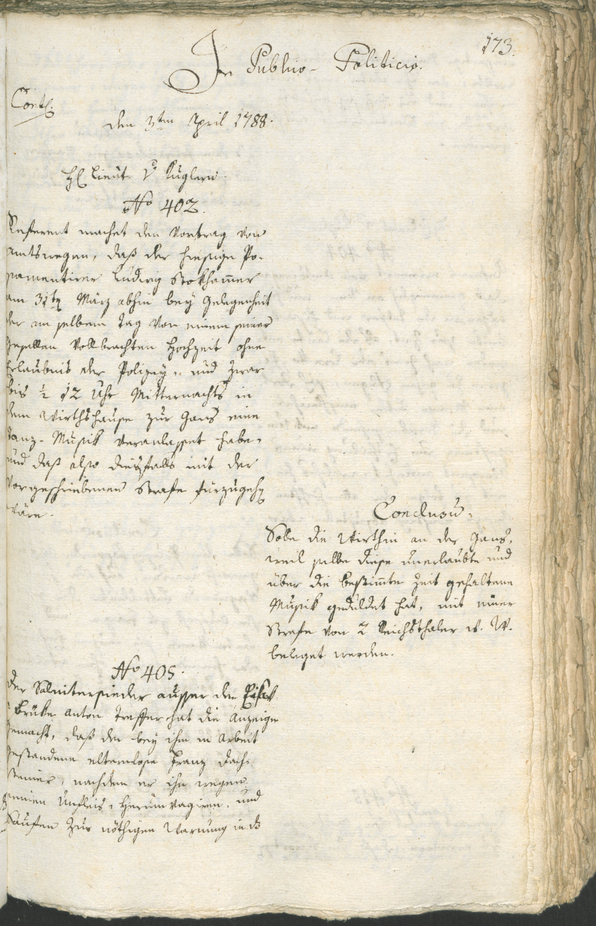 173.
In Publico-Politicis.
Cont:
den 3ten April 1788.
H. Lieut. v. Kuglern.
No 402.
Referent machet den Vortrag von
amtswegen, daß der hiesige Po-
samentirer Ludwig Stokhamer
am 31ten März abhin bey Gelegenheit
der an selbem Tag von einem seiner
gesellen vollbrachten Hochzeit ohne
Erlaubnis der Polizey, und zwar
bis ½ 12 Uhr Mitternachts in
dem Wirthshause zur Gans eine
Tanz-Musik veranlasset habe,
und daß also diesfalls mit der
vorgeschriebenen Strafe fürzugehen
wäre.
Conclusum.
Solle die Wirthin an der Gans,
weil selbe diese unerlaubte und
über die bestimte Zeit gehaltene
Musik geduldet hat, mit einer
Strafe von 2 Reichsthaler W. W.
beleget werden.
No 405.
Der Saliterssieder ausser der Eisak
Brüke Anton Traffer hat die Anzeige
gemacht, daß der bey ihm in Arbeit
gestandene elternlose Franz
nachdem er ihn wegen
seinen Unfleis, Herumvagiren, und
Saufen zur nöthigen Warnung in das